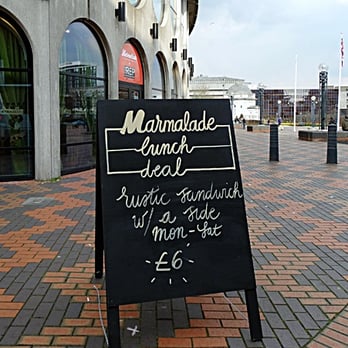 Marmalade
lunch
deal
rustic sandwich
w/ a side
mon-sat
£6